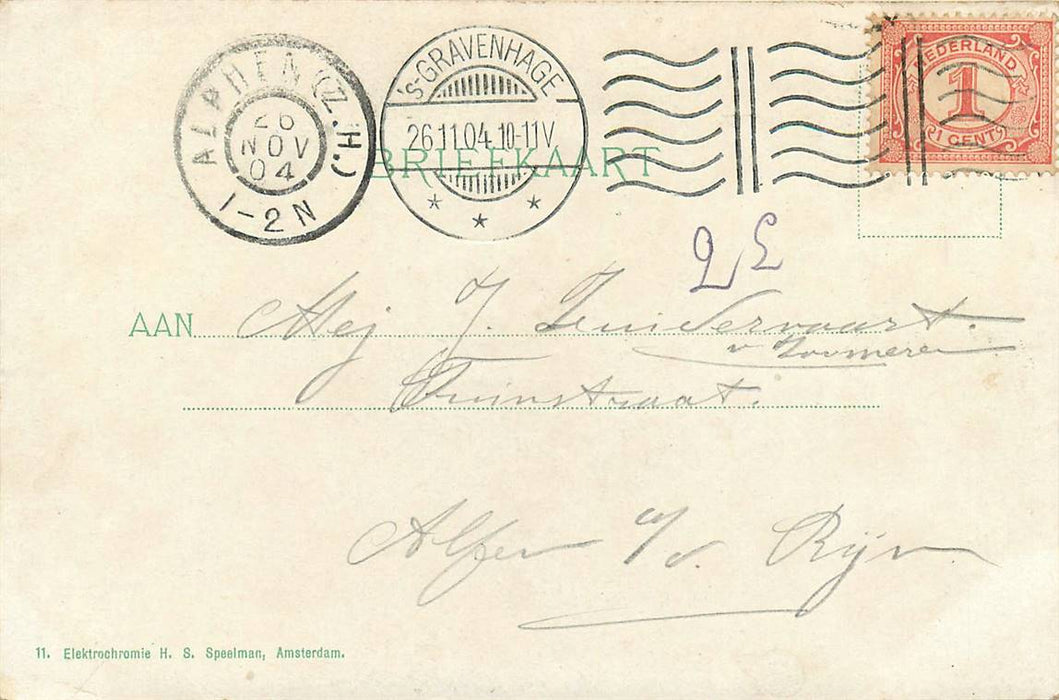 ALPHEN (Z.H.)
26
NOV
04
1-2N
'S-GRAVENHAGE
26.11.04.10-11V
* * *
NEDERLAND
1
1 CENT
BRIEFKAART
AAN Mej J. Zuidervaart.
v Zoomeren
Tuinstraat.
Alfen a/d. Rijn
11. Elektrochromie H. S. Speelman, Amsterdam.